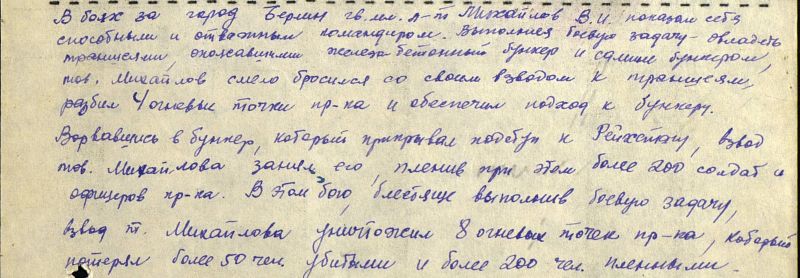 В боях за город Берлин гв. мл. л-т Михайлов В.И. показал себя
способным и отважным командиром. Выполняя боевую задачу - овладеть
траншеями, опоясавшими железо-бетонный бункер и самим бункером,
тов. Михайлов смело бросился со своим взводом к траншеям,
разбил 4 огневые точки пр-ка и обеспечил подход к бункеру.
Ворвавшись в бункер, который прикрывал подступ к Рейхстагу, взвод
тов. Михайлова занял его, пленив при этом более 200 солдат и
офицеров пр-ка. В этом бою, блестяще выполнив боевую задачу,
взвод т. Михайлова уничтожил 8 огневых точек пр-ка, который
потерял более 50 чел. убитыми и более 200 чел. пленными.